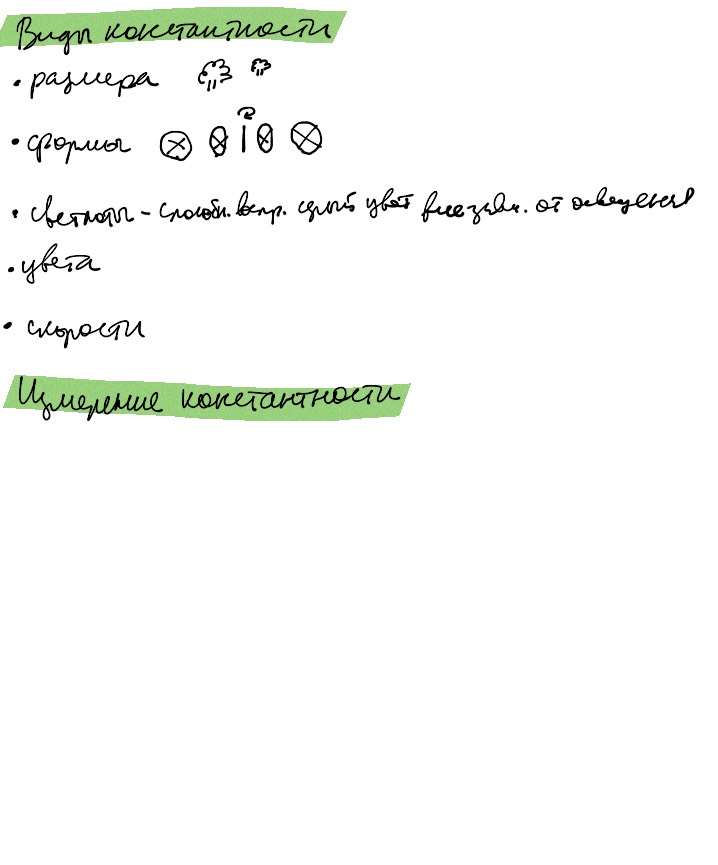 Виды константности
• размера
• формы
• светлоты - способн. воспр. серый цвет вне завн. от освещения
• цвета
• скорости
Измерение константности